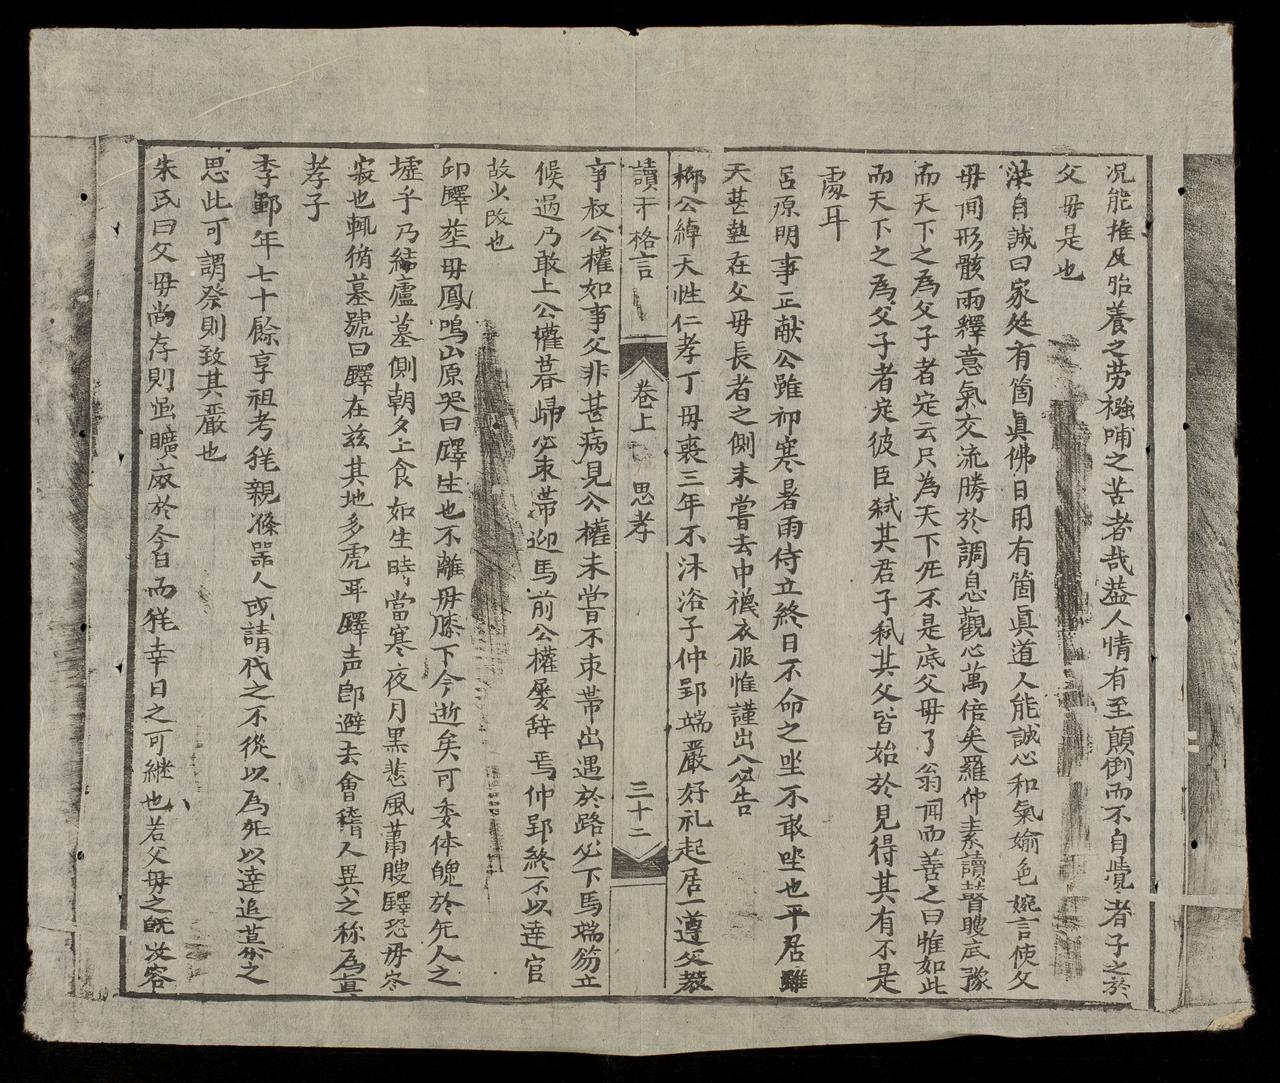 况能推及胎養之劳襁哺之苦者哉蓋人情有至顛倒而不自覺者子之於
父母是也
梁自誠曰家处有箇眞佛日用有箇眞道人能誠心和氣媮色婉言使父
母间形骸兩釋意氣交流勝於調息觀心萬倍矣羅仲素讀瞽瞍底豫
而天下之為父子者定云只為天下无不是底父母了翁闻而善之曰惟如此
而天下之為父子者定彼臣弑其君子弑其父皆始於見得其有不是
處耳
吕原明事正献公雖祁寒暑雨侍立終日不命之坐不敢坐也平居雖
天甚熱在父母長者之側未嘗去巾襪衣服惟謹出入必告
柳公綽天性仁孝丁母喪三年不沐浴子仲郢端嚴好礼起居一遵父教
讀干格言 卷上 思孝 三十二
事叔公權如事父非甚病見公權未嘗不束带出遇於路必下馬端笏立
候過乃敢上公權暮歸必束滞迎馬前公權屡辞焉仲郢終不以達官
故少改也
卬驛塟母鳳鳴山原哭曰驛生也不離母膝下今逝矣可委体魄於死人之
墟乎乃結廬墓側朝夕上食如生時當寒夜月黑悲風蕭膄驛恐母冬
寂也輒循墓號曰驛在兹其地多虎耳驛声即避去會稽人異之称為真
孝子
李鄞年七十餘享祖考猶親滌噐人或請代之不從以為死以達追慕之
思此可謂祭則致其嚴也
朱氏曰父母尚存則虽曠廢於今日而猶幸日之可継也若父母之既没容